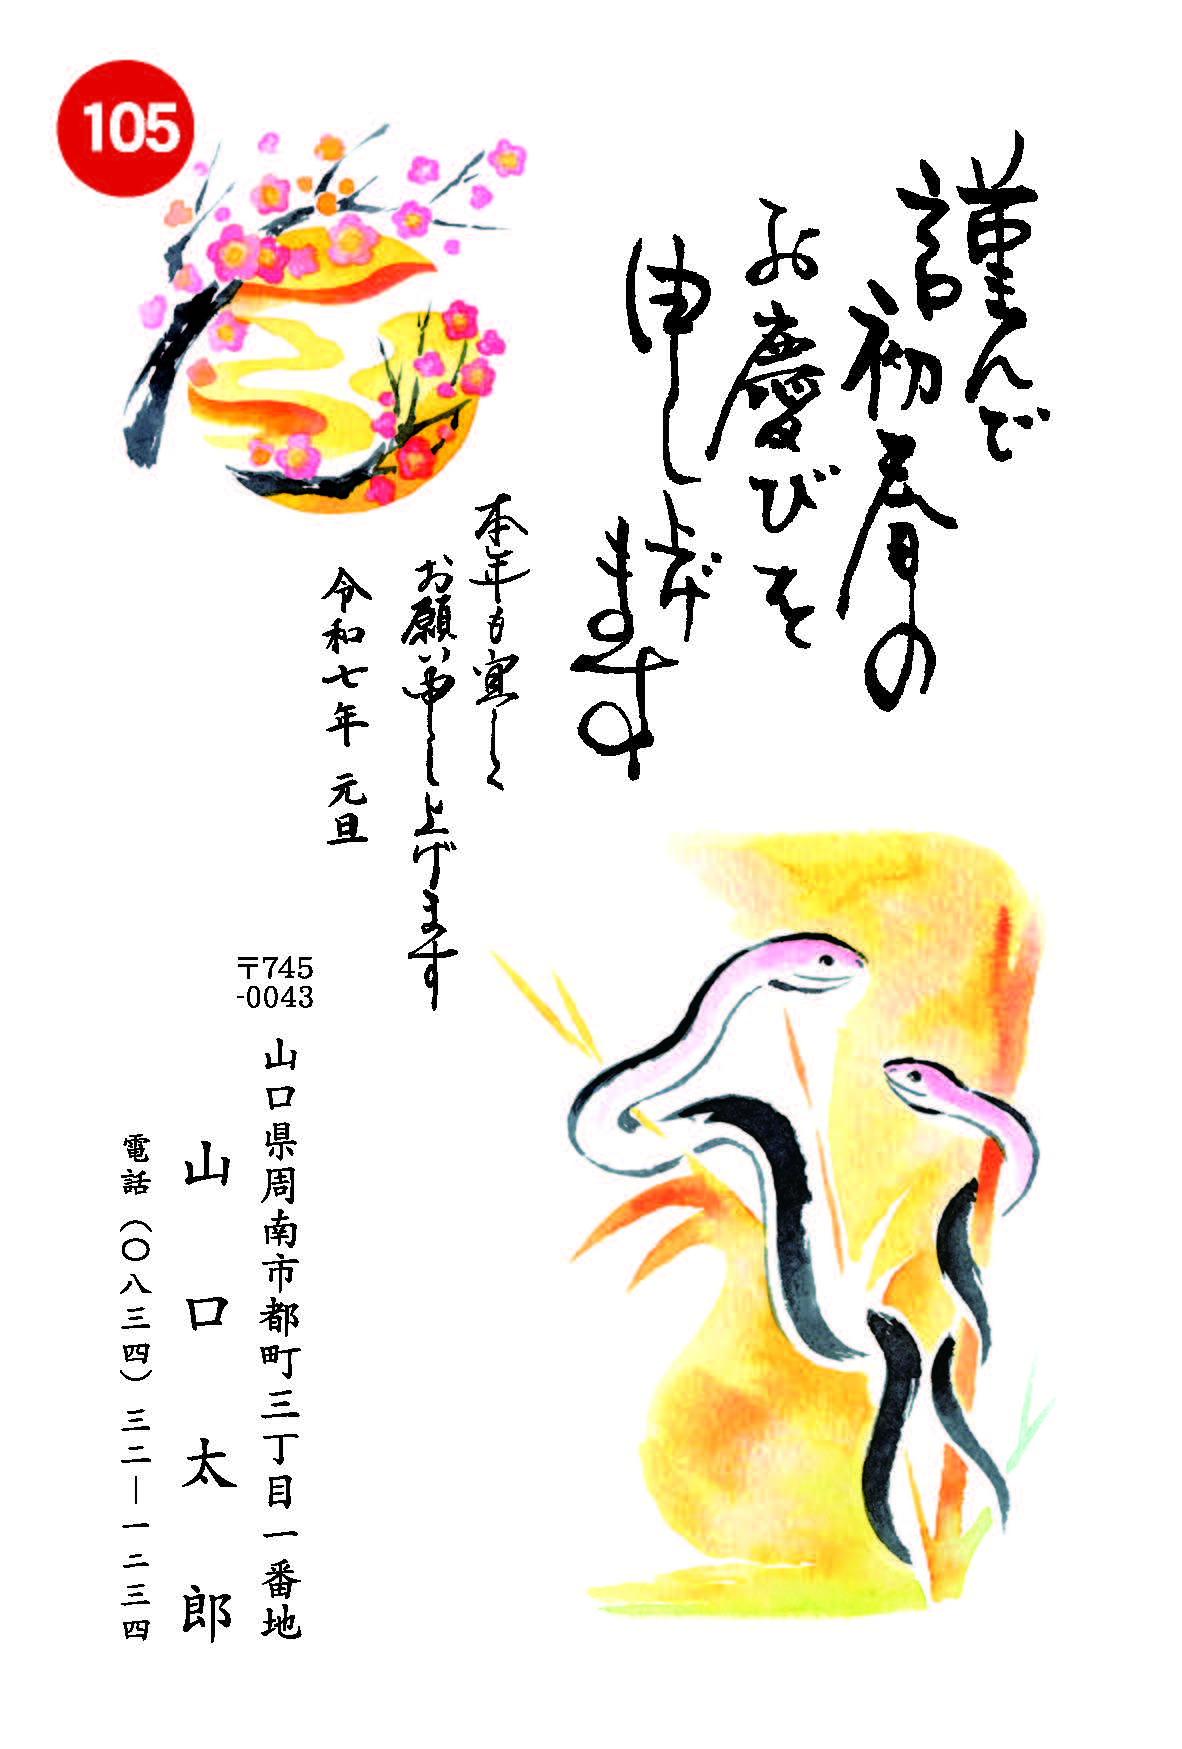 105
謹んで
初春の
お慶びを
申し上げます
本年も宜しく
お願い申し上げます
令和七年 元旦
〒745
-0043
山口県周南市都町三丁目一番地
山口太郎
電話（〇八三四）三二―一二三四